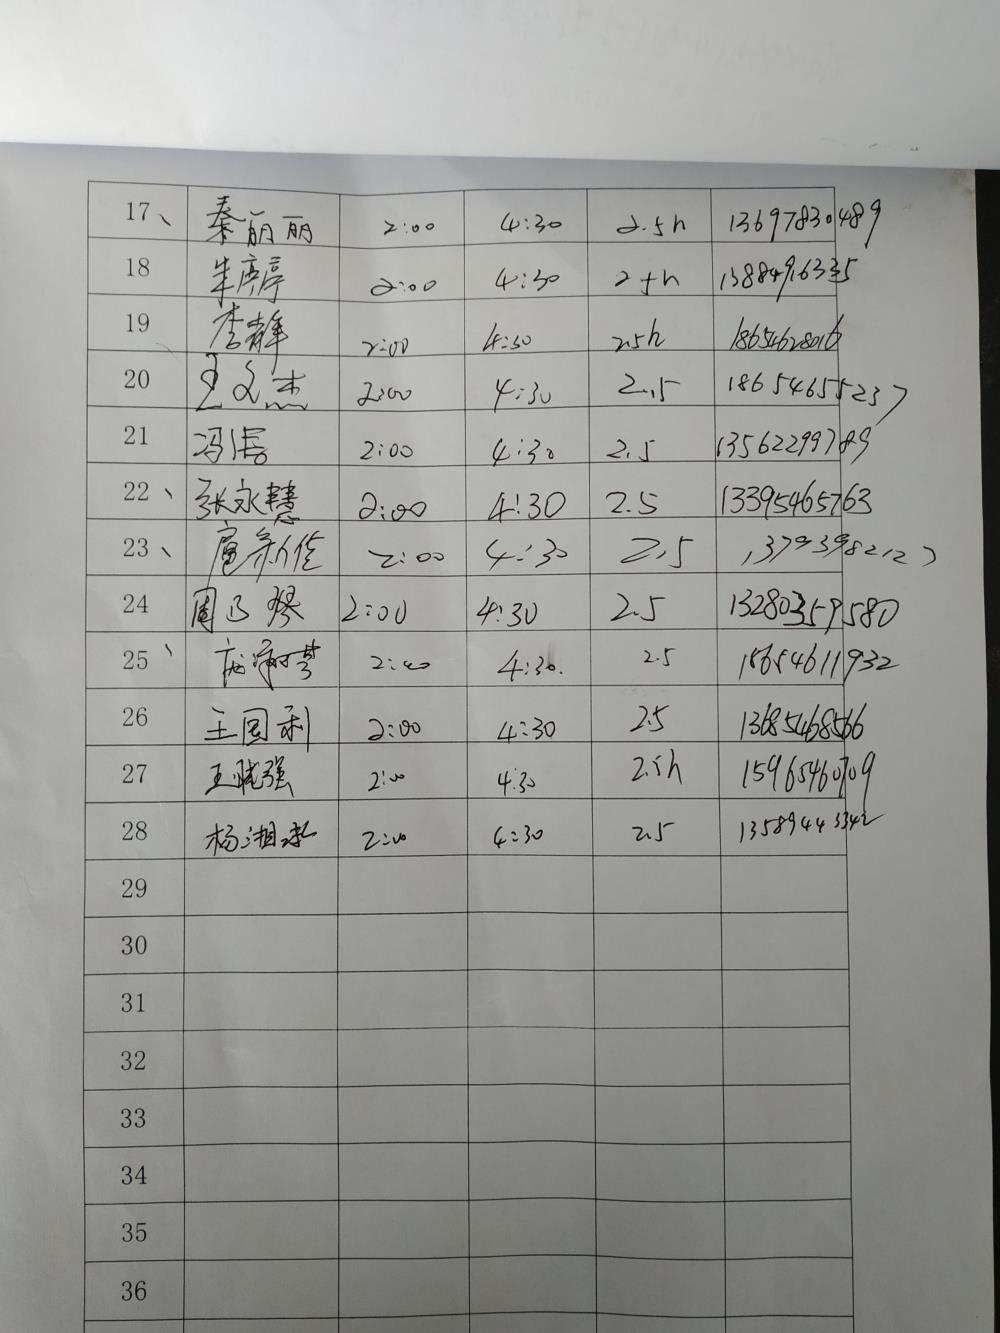 17、 秦丽丽 2:00 4:30 2.5h 13697830489
18 朱婷婷 2:00 4:30 2.5h 13884916335
19 李静 2:00 4:30 2.5h 18654628016
20 王文杰 2:00 4:30 2.5 18654655237
21 冯涛 2:00 4:30 2.5 13562299789
22、 张永慧 2:00 4:30 2.5 13395465763
23、 扈新佳 2:00 4:30 2.5 13793982127
24 周 2:00 4:30 2.5 13280359580
25、 2:00 4:30. 2.5 18654611932
26 王国利 2:00 4:30 2.5 13685468566
27 王晓强 2:00 4:30 2.5h 15965460709
28 杨湘 2:00 4:30 2.5 13589443342
29
30
31
32
33
34
35
36